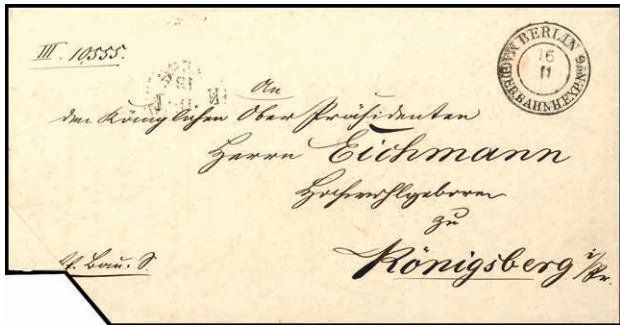 III. 10555.
BERLIN
16
11
An
den Königlichen Ober Präsidenten
Herrn Eichmann
Hochwohlgeboren
zu
Königsberg i/Pr.
Bau. S.